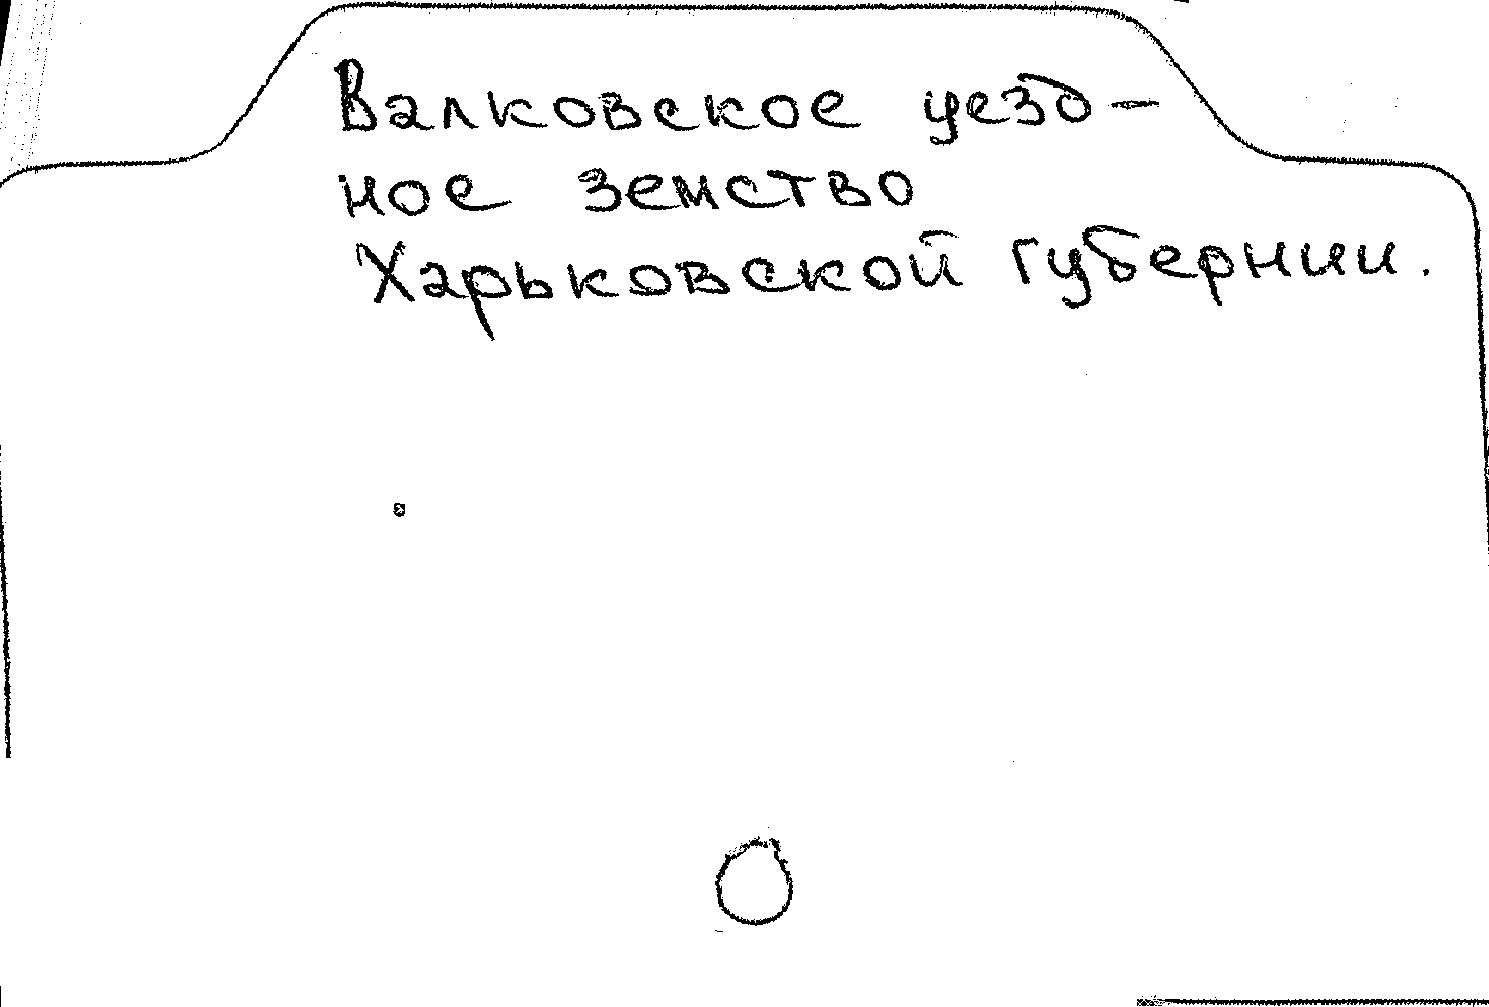 Валковское уезд-
ное земство
Харьковской губернии.